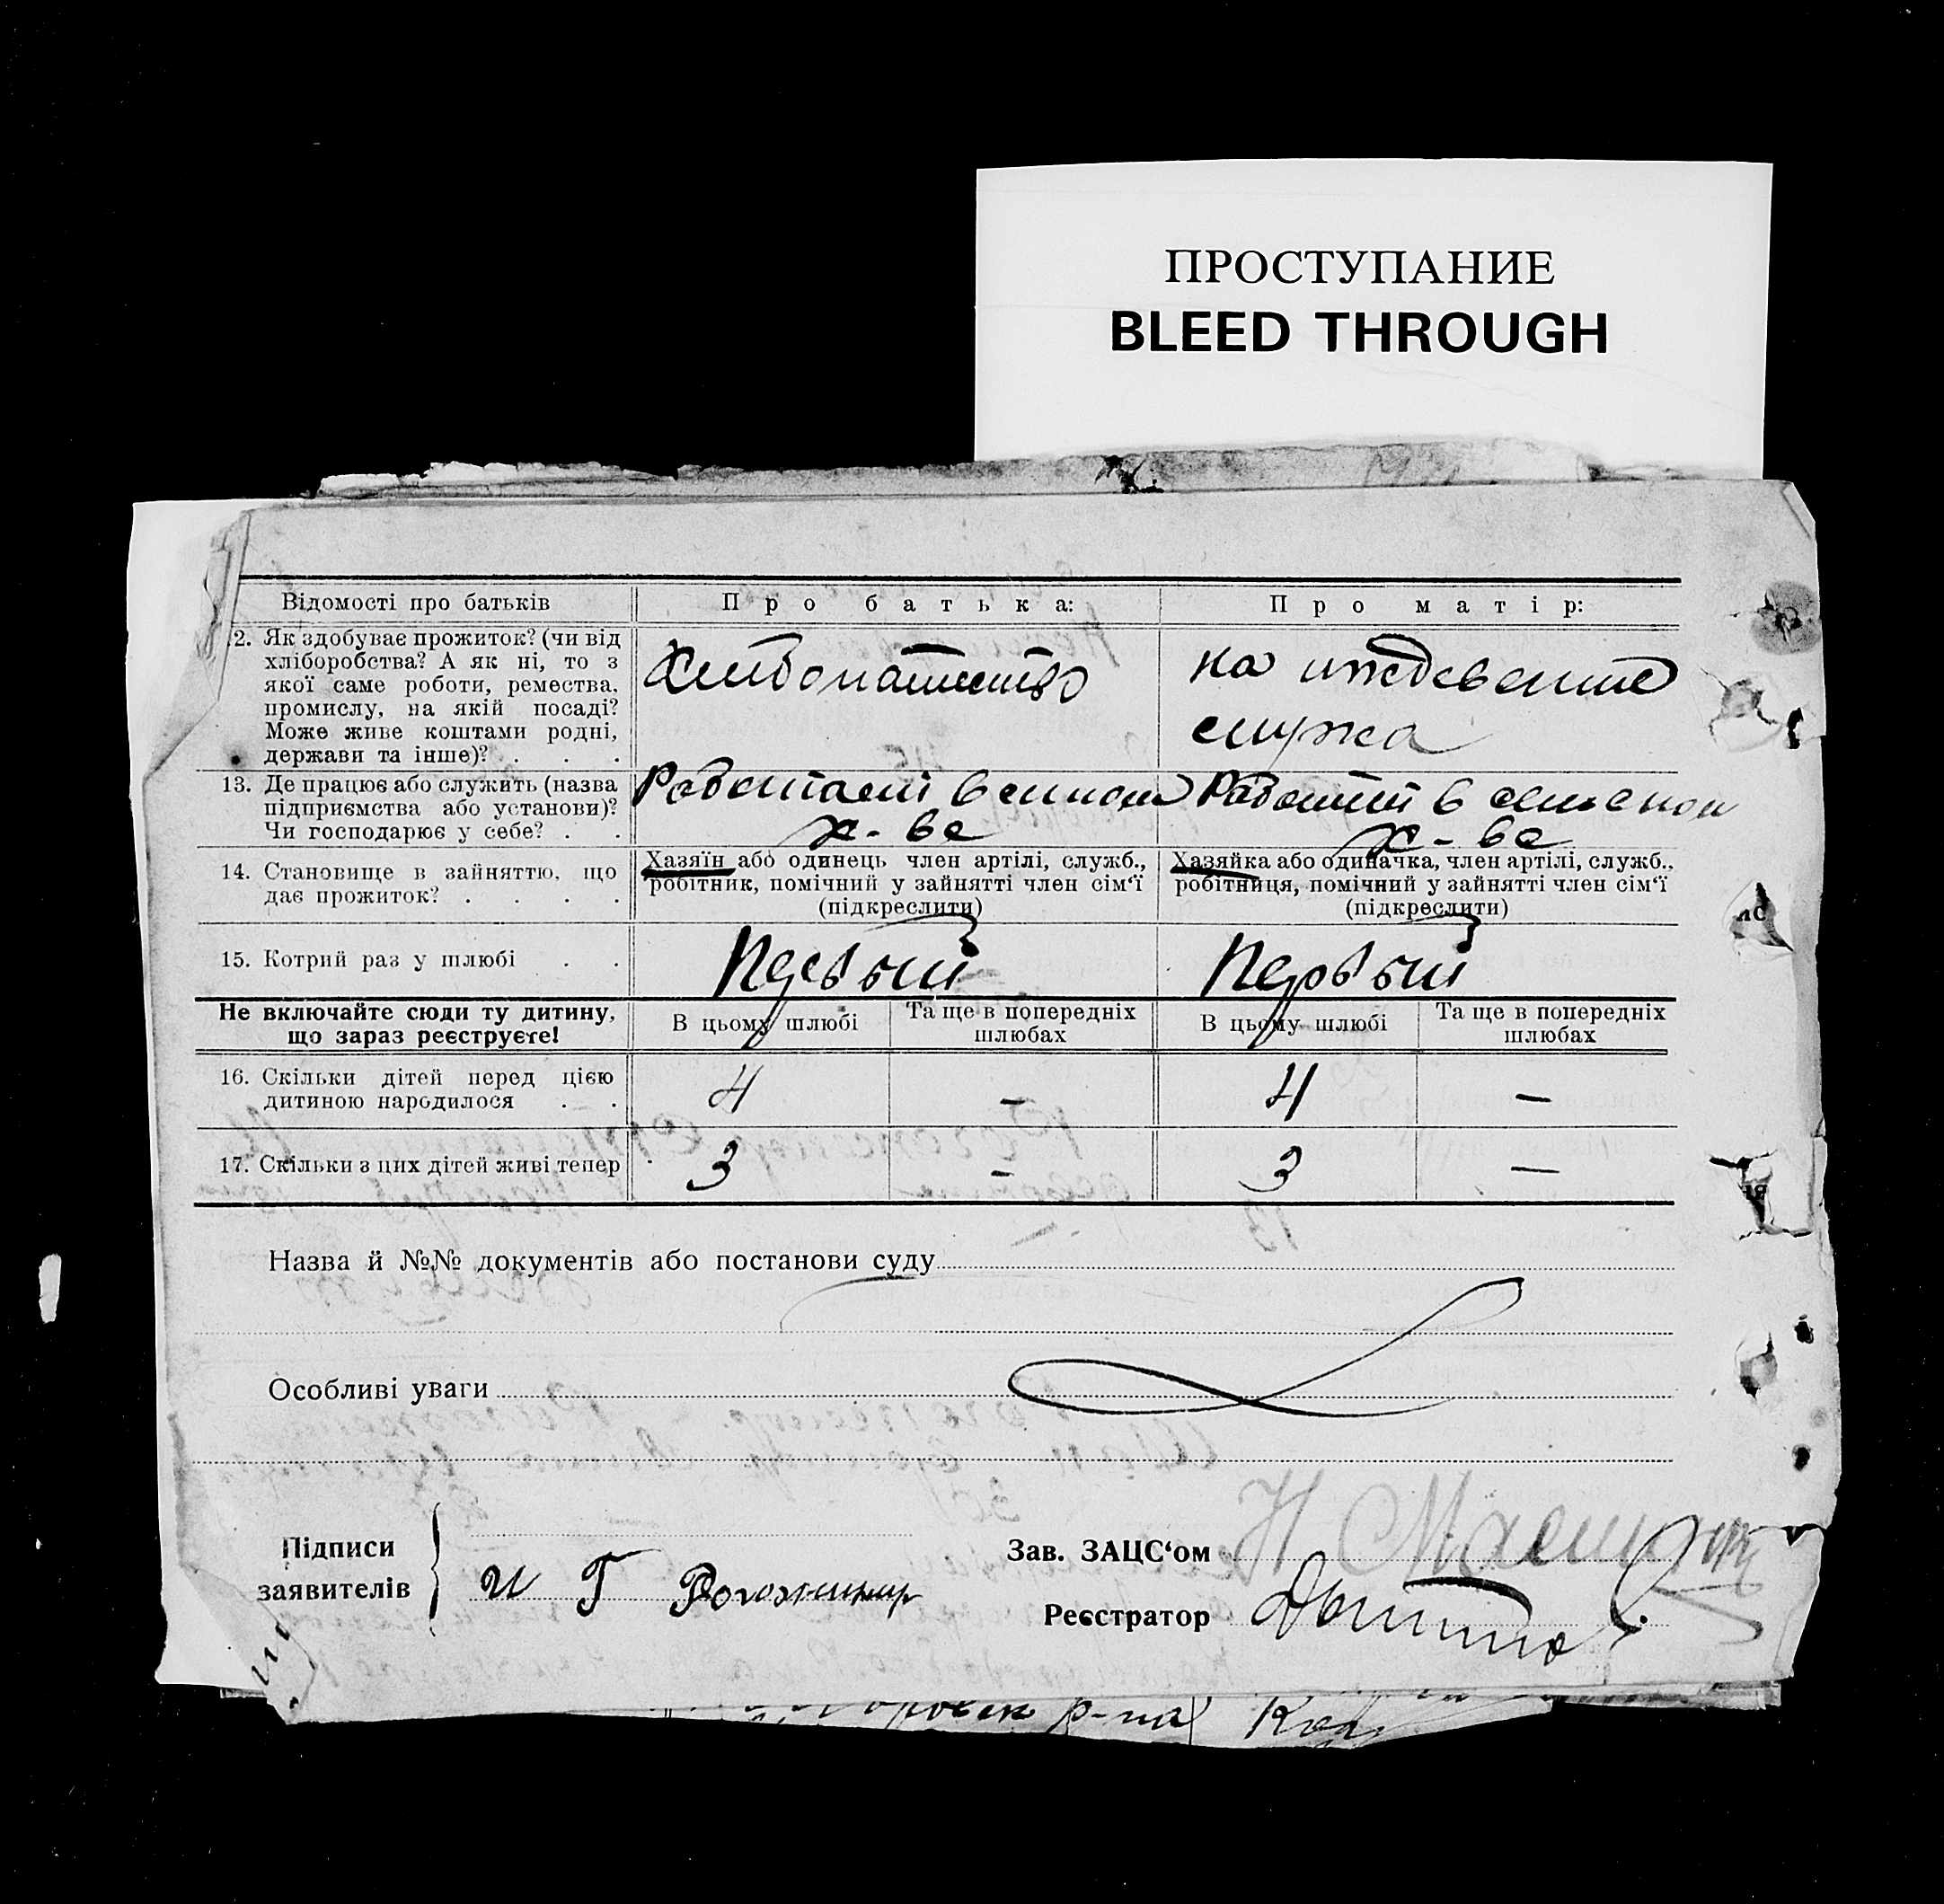 ПРОСТУПАНИЕ
BLEED THROUGH
Відомості про батьків
Про батька:
Про матір:
2. Як здобуває прожиток? (чи від
хліборобства? А як ні, то з
якої саме роботи, ремества,
промислу, на якій посаді?
Може живе коштами родні,
держави та інше)? . . .
на иждевении
мужа
13. Де працює або служить (назва
підприємства або установи)?
Чи господарює у себе? . .
Работает в
х-ве
Работает в
х-ве
14. Становище в зайняттю, що
дає прожиток? . . . .
Хазяїн або одинець член артілі, служб.,
робітник, помічний у зайнятті член сім‘ї
(підкреслити)
Хазяйка або одиначка, член артілі, служб.,
робітниця, помічний у зайнятті член сім‘ї
(підкреслити)
15. Котрий раз у шлюбі . .
Первый
Первый
Не включайте сюди ту дитину,
що зараз реєструєте!
В цьому шлюбі
Та ще в попередніх
шлюбах
В цьому шлюбі
Та ще в попередніх
шлюбах
16. Скільки дітей перед цією
дитиною народилося . .
4
—
4
—
17. Скільки з цих дітей живі тепер
3
—
3
—
Назва й №№ документів або постанови суду
Особливі уваги
Підписи
заявителів
И Г
Зав. ЗАЦС‘ом
Реєстратор
р-на